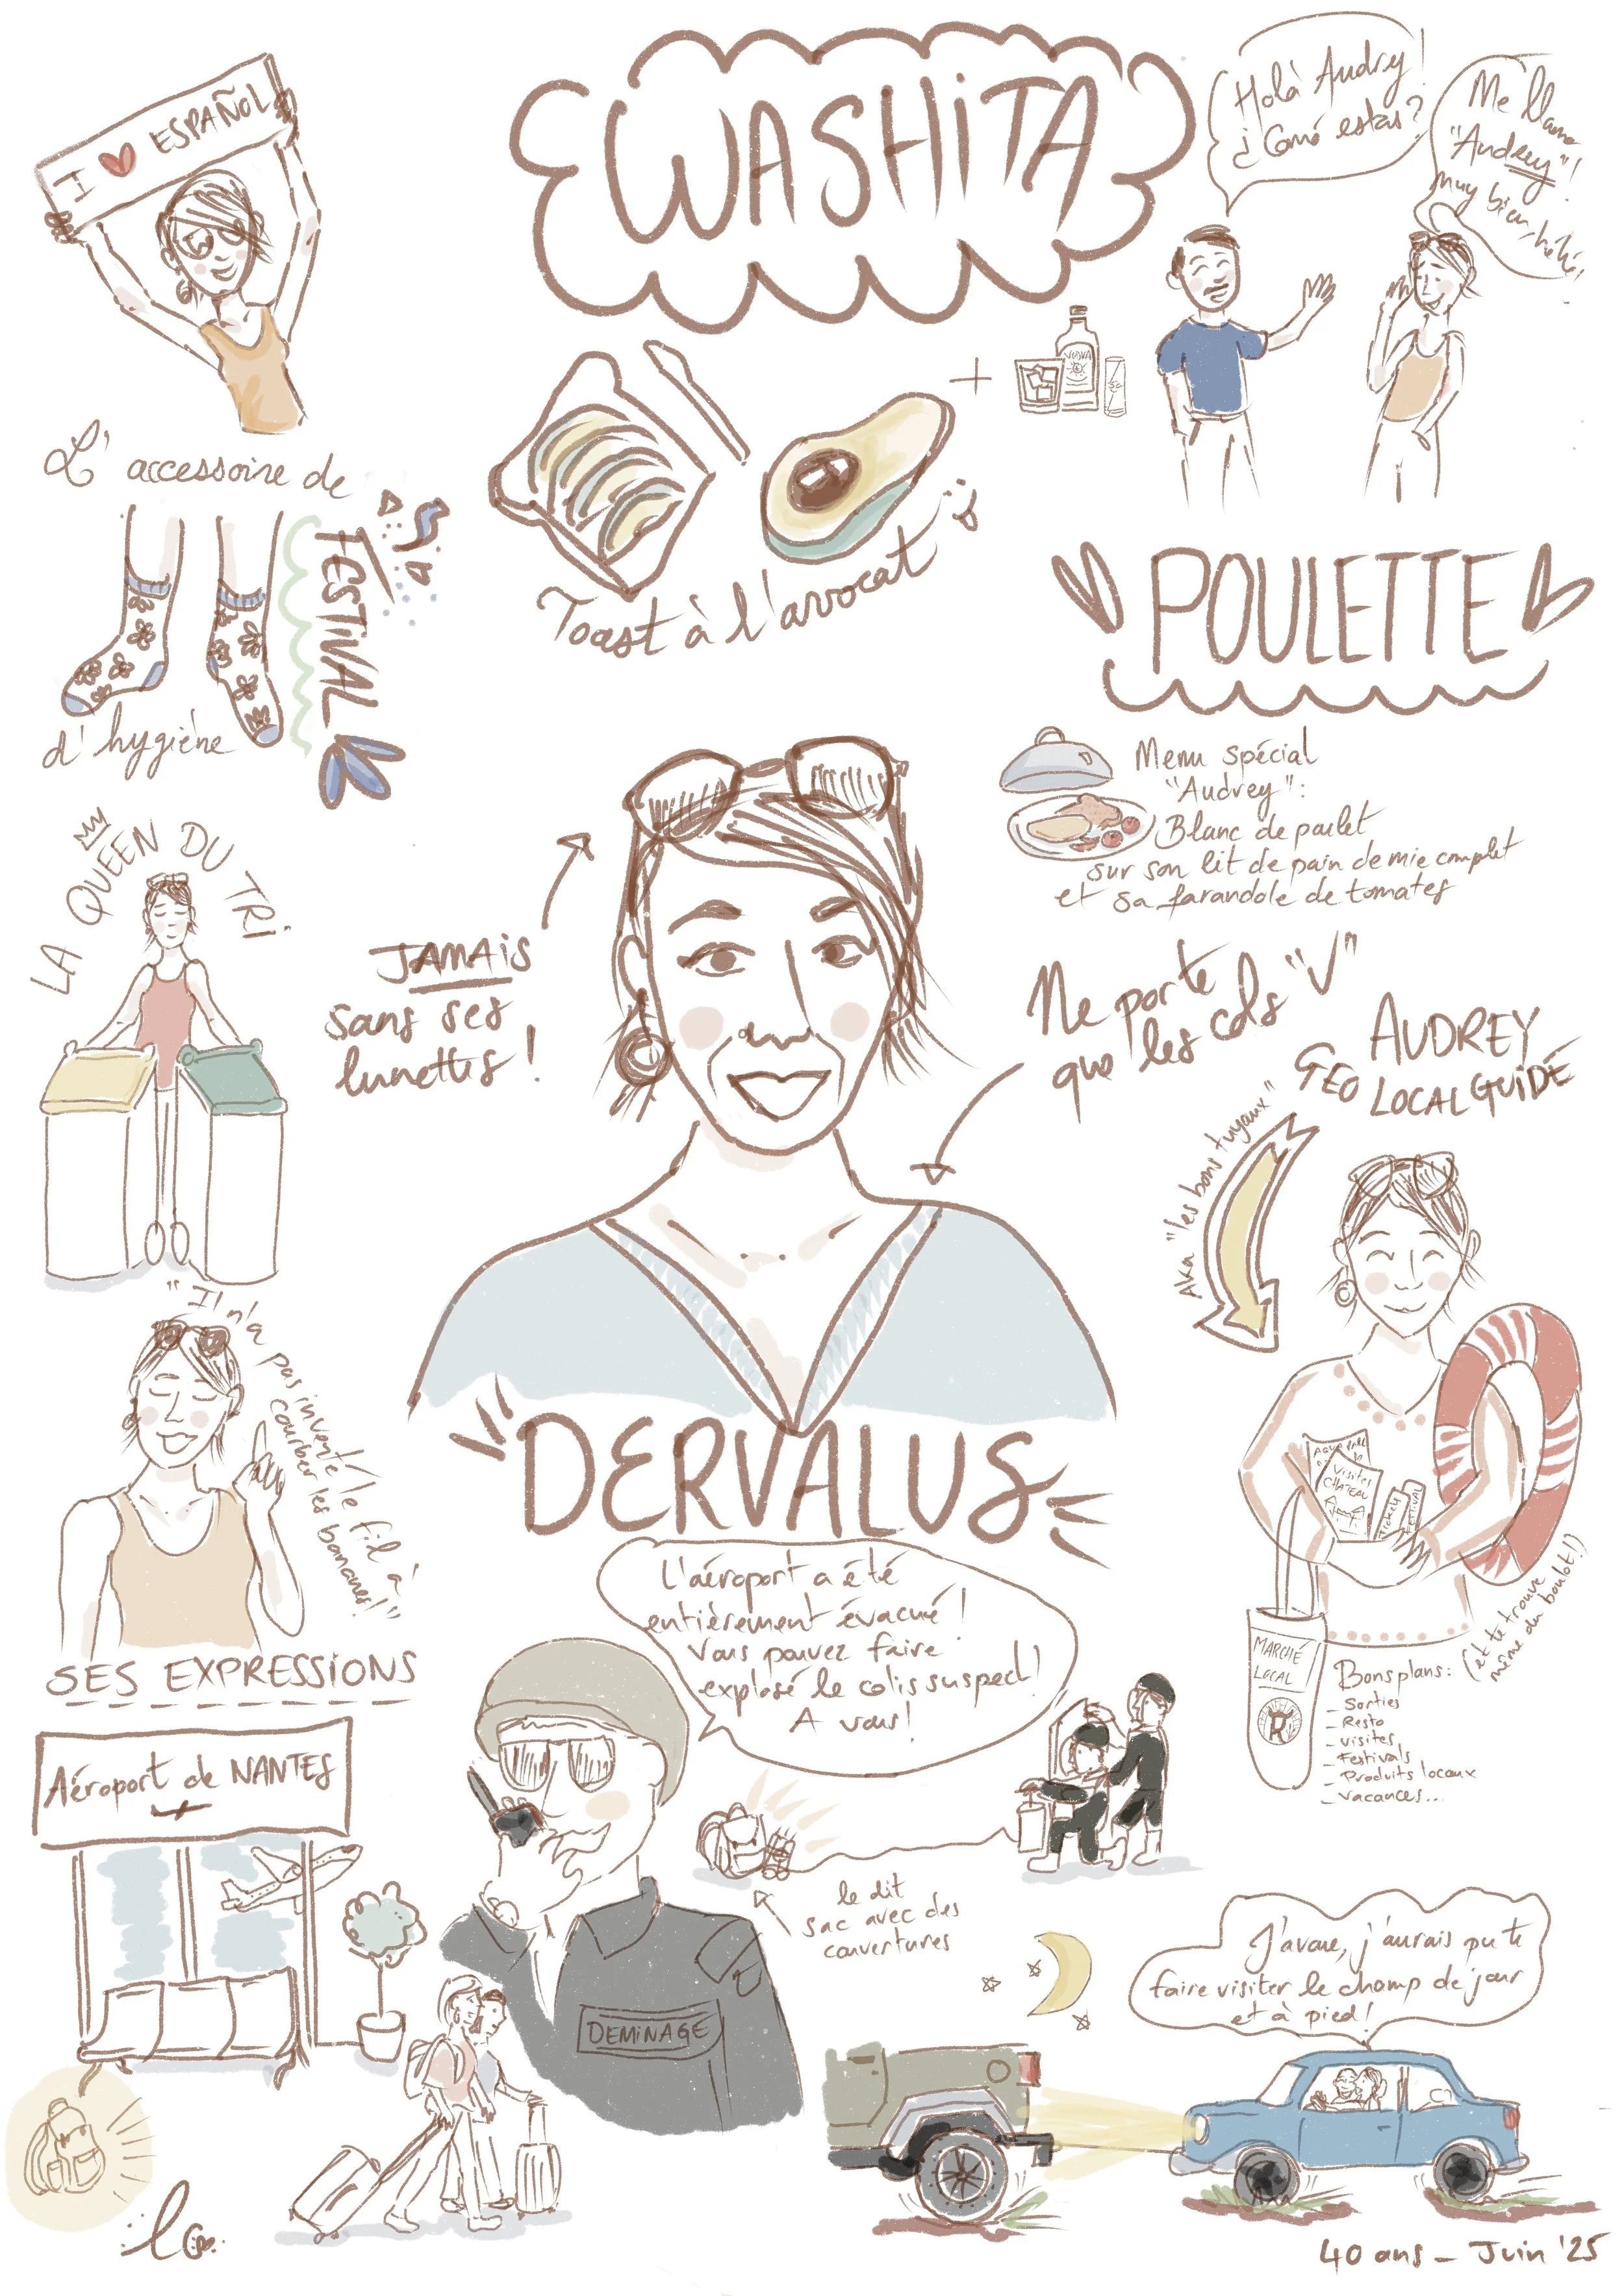 I ❤ ESPAÑOL
WASHITA
Holà Audrey!
¿Comó estas?
Me llamo
"Audrey"!
muy bien, héhé!
L'accessoire de
d'hygiène
FESTIVAL
+
VODKA
Toast à l'avocat
POULETTE
Menu spécial
"Audrey":
Blanc de poulet
sur son lit de pain de mie complet
et sa farandole de tomates
LA QUEEN DU TRi
JAMAiS
sans ses
lunettes!
Ne porte
que les cols "V"
AUDREY
GEO LOCALGUIDE
Aka "les bons tuyaux"
"Il n'a pas inventé le fil à
courber les bananes!"
SES EXPRESSIONS
DERVALUS
AQUA PARC
Visites
CHATEAU
Tickets
FESTIVAL
MARCHÉ
LOCAL
R
Bons plans:
- Sorties
- Resto
- visites
- Festivals
- Produits locaux
- Vacances...
(et te trouve
même du boulot!)
L'aéroport a été
entièrement évacué!
Vous pouvez faire
explosé le colis suspect!
A vous!
Aéroport de NANTES
le dit
sac avec des
couvertures
DEMINAGE
J'avoue, j'aurais pu te
faire visiter le champ de jour
et à pied!
40 ans - Juin '25